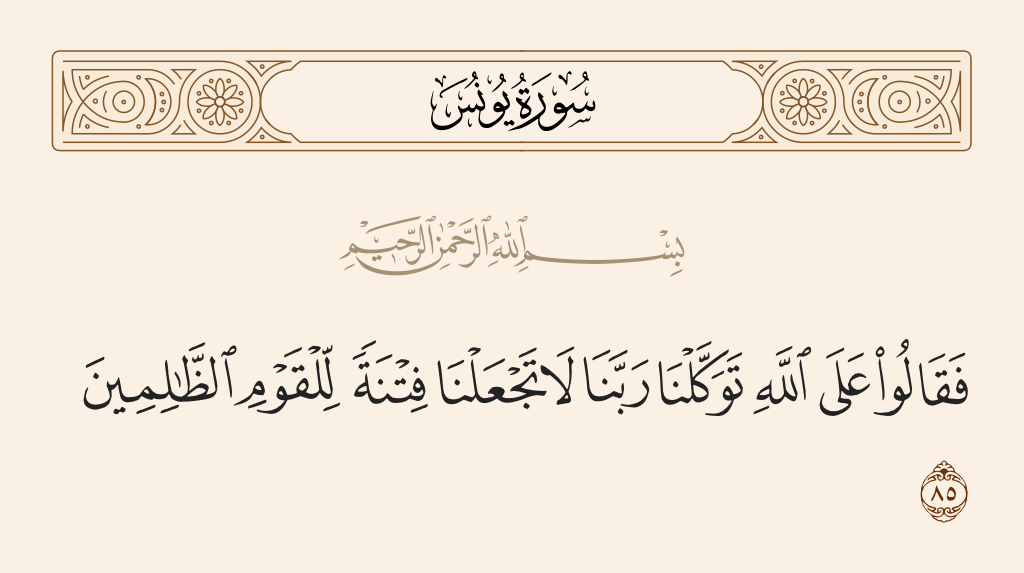 سُورَةُ يُونُسَ
بِسْمِ ٱللَّهِ ٱلرَّحْمَٰنِ ٱلرَّحِيمِ
فَقَالُوا۟ عَلَى ٱللَّهِ تَوَكَّلْنَا رَبَّنَا لَا تَجْعَلْنَا فِتْنَةً لِّلْقَوْمِ ٱلظَّٰلِمِينَ
٨٥